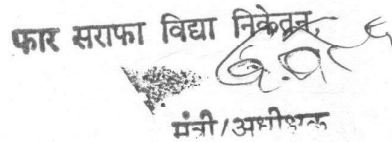 फार सराफा विद्या निकेतन
मंत्री/अधीक्षक